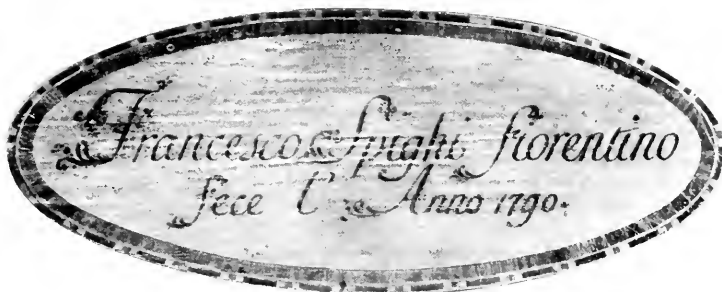 Francesco Spighi fiorentino
fece l' Anno 1790.